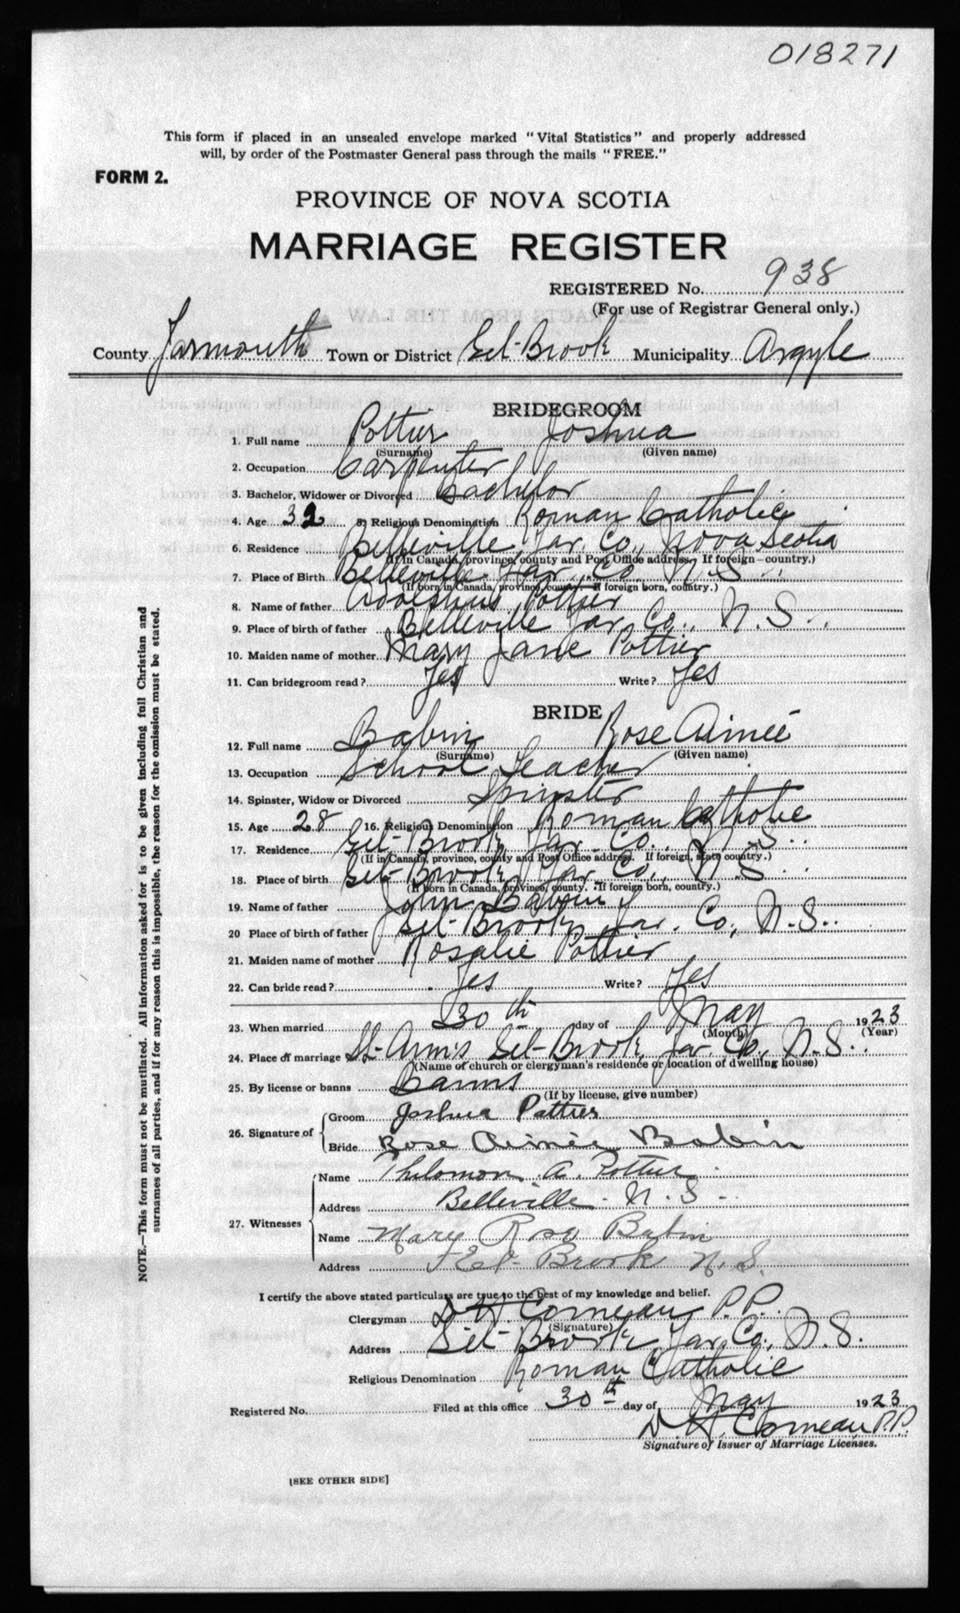 018271
This form if placed in an unsealed envelope marked "Vital Statistics" and properly addressed
will, by order of the Postmaster General pass through the mails "FREE."
FORM 2.
PROVINCE OF NOVA SCOTIA
MARRIAGE REGISTER
REGISTERED No. 938
(For use of Registrar General only.)
County Yarmouth Town or District Eel-Brook Municipality Argyle
BRIDEGROOM
1. Full name Pottier Joshua
(Surname) (Given name)
2. Occupation Carpenter
3. Bachelor, Widower or Divorced Bachelor
4. Age 32 5. Religious Denomination Roman Catholic
6. Residence Belleville, Yar. Co., Nova Scotia
(If in Canada, province, county and Post Office address. If foreign—country.)
7. Place of Birth Belleville Yar. Co. N.S.
(If born in Canada, province, county. If foreign born, country.)
8. Name of father Pottier
9. Place of birth of father Belleville Yar. Co., N.S.
10. Maiden name of mother Mary Jane Pottier
11. Can bridegroom read? Yes Write? Yes
BRIDE
12. Full name Babin Rose Aimée
(Surname) (Given name)
13. Occupation School Teacher
14. Spinster, Widow or Divorced Spinster
15. Age 28 16. Religious Denomination Roman Catholic
17. Residence Eel-Brook, Yar. Co., N.S.
(If in Canada, province, county and Post Office address. If foreign, state country.)
18. Place of birth Eel-Brook, Yar. Co., N.S.
(If born in Canada, province, county. If foreign born, country.)
19. Name of father John Babin
20 Place of birth of father Eel-Brook Yar. Co., N.S.
21. Maiden name of mother Rosalie Pottier
22. Can bride read? Yes Write? Yes
23. When married 30th day of May 1923
(Month) (Year)
24. Place of marriage St-Ann's Eel-Brook, Yar. Co., N.S.
(Name of church or clergyman's residence or location of dwelling house)
25. By license or banns Banns
(If by license, give number)
26. Signature of Groom Joshua Pottier
Bride Rose Aimée Babin
27. Witnesses Name Philomon A. Pottier
Address Belleville. N.S.
Name Mary Rose Babin
Address Eel-Brook N.S.
I certify the above stated particulars are true to the best of my knowledge and belief.
Clergyman D. H. Comeau P.P.
(Signature)
Address Eel-Brook Yar. Co., N.S.
Religious Denomination Roman Catholic
Registered No. Filed at this office 30th day of May 1923
D. H. Comeau P.P.
Signature of Issuer of Marriage Licenses.
[SEE OTHER SIDE]
NOTE.—This form must not be mutilated. All information asked for is to be given including full Christian and
surnames of all parties, and if for any reason this is impossible, the reason for the omission must be stated.